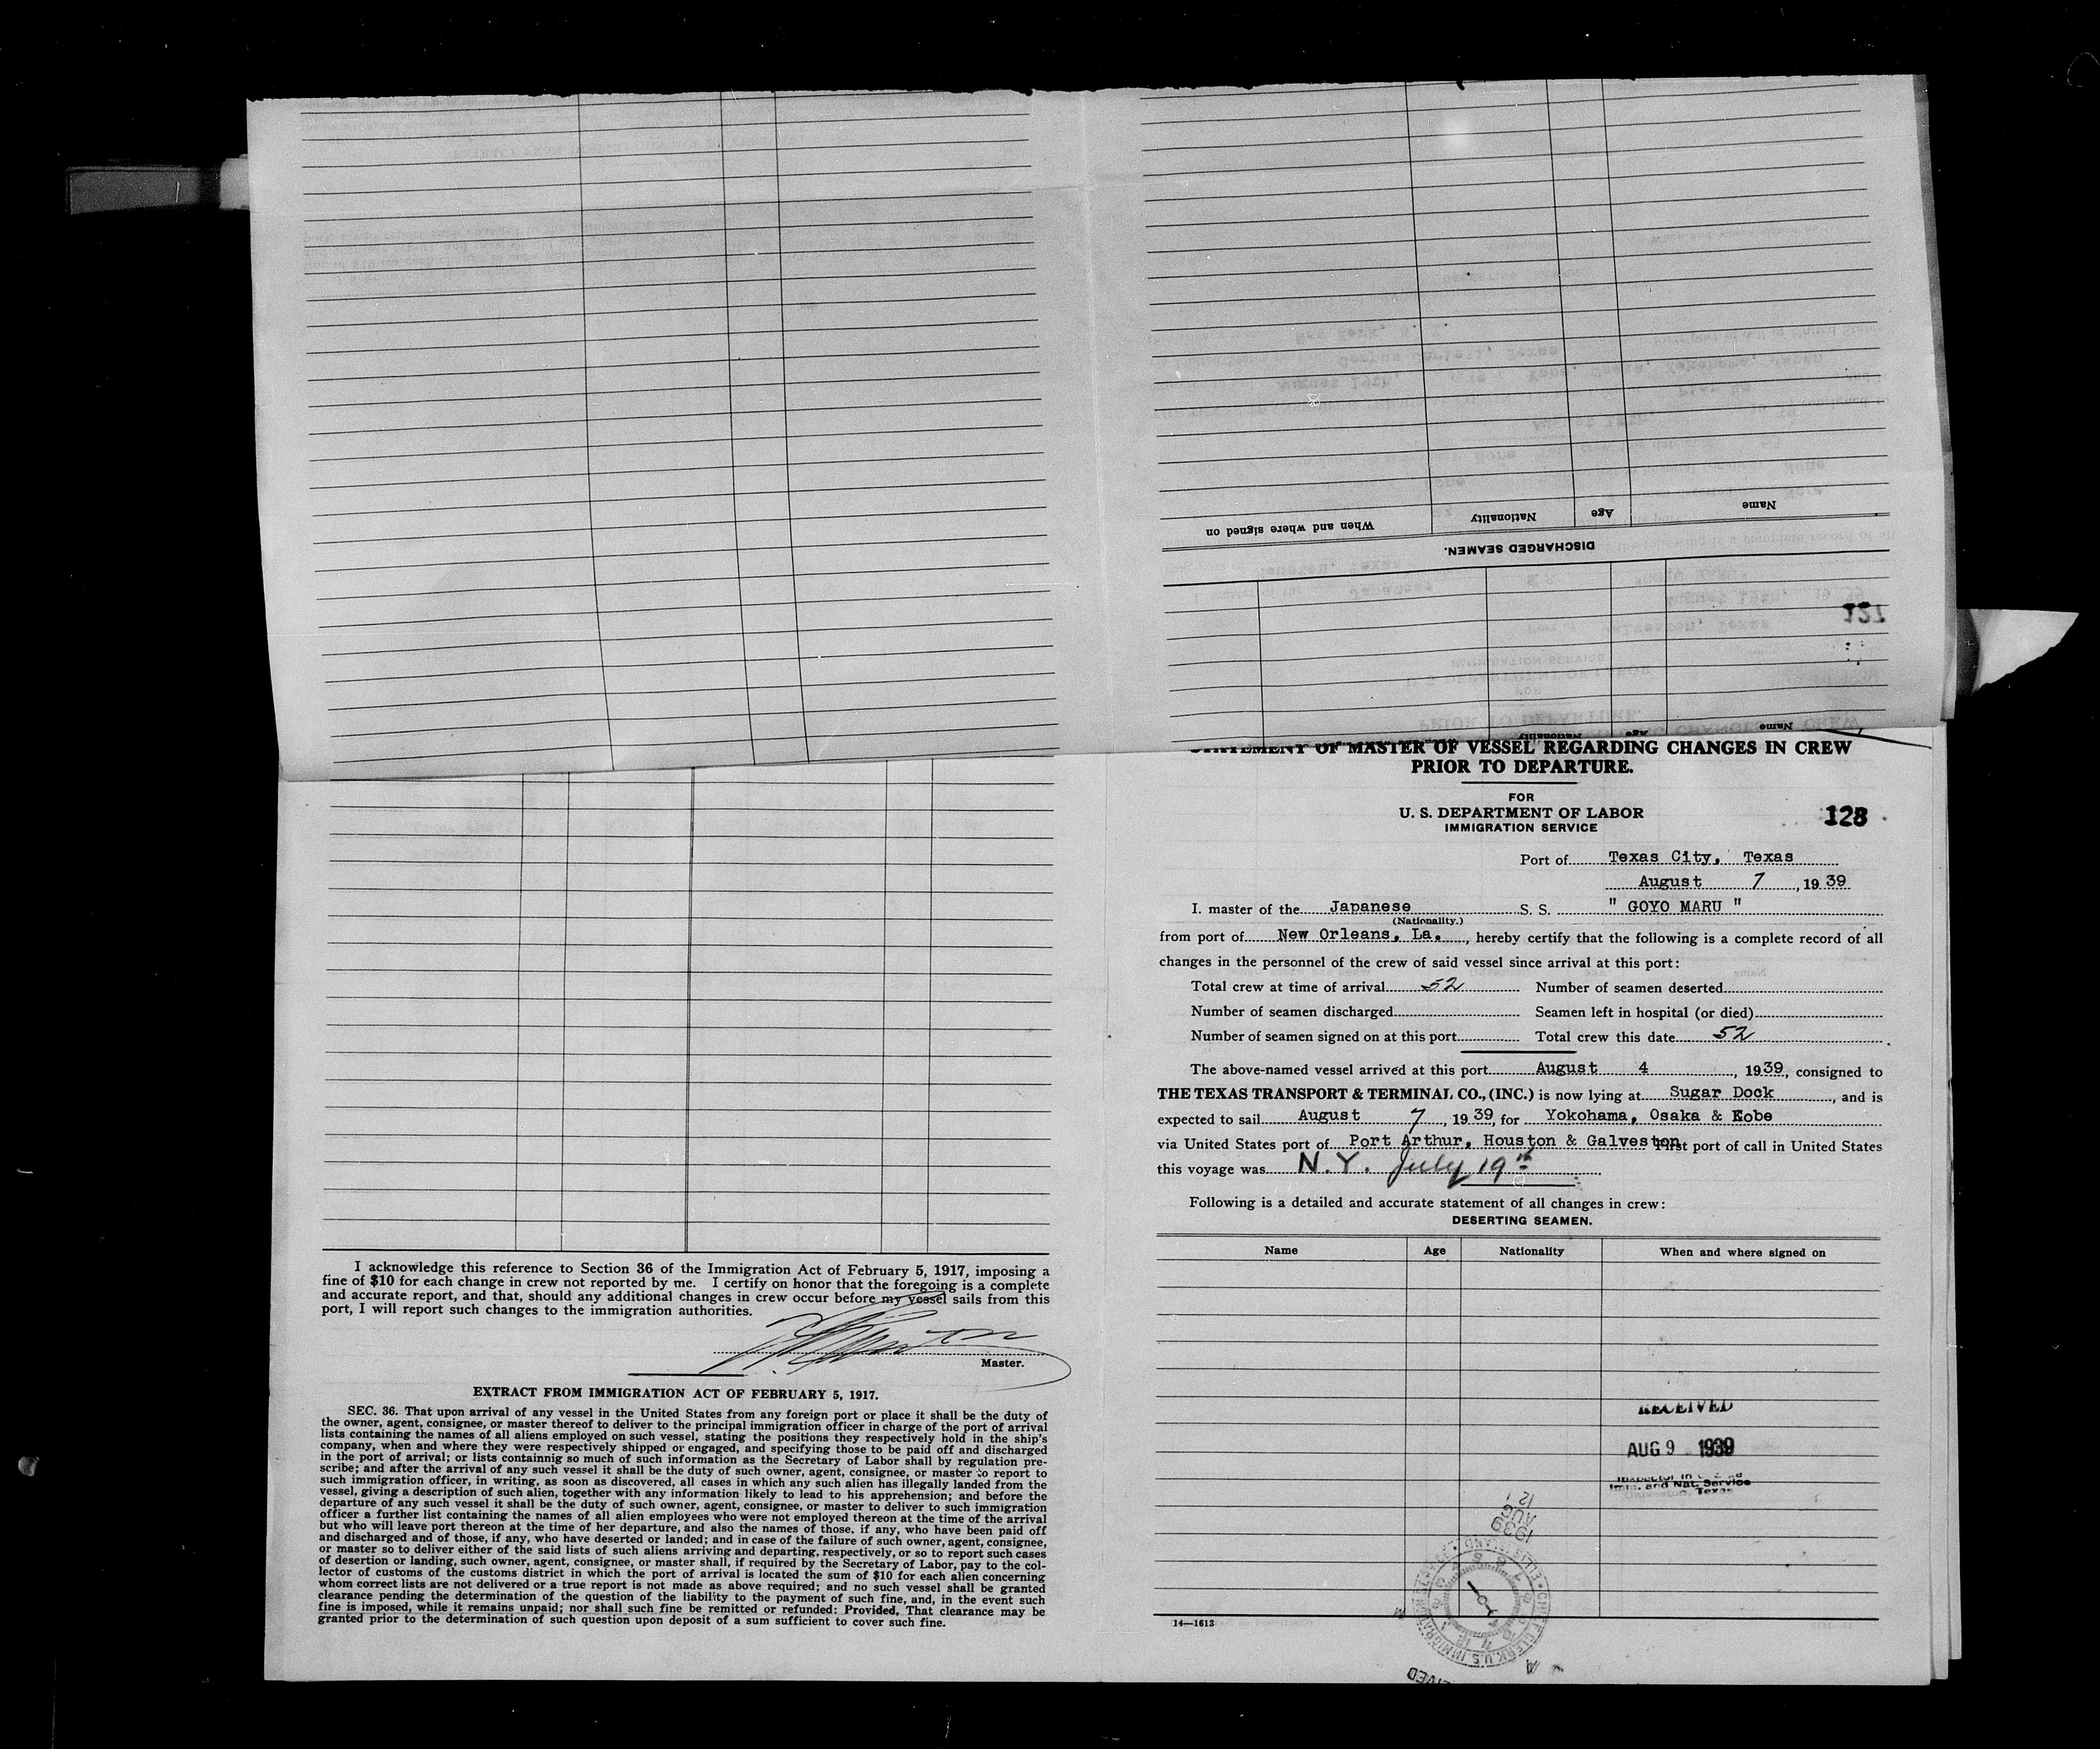 When and where signed on
Nationality
Age
Name
DISCHARGED SEAMEN.
127
Name
Age
Nationality
STATEMENT OF MASTER OF VESSEL REGARDING CHANGES IN CREW
PRIOR TO DEPARTURE.
FOR
U. S. DEPARTMENT OF LABOR
IMMIGRATION SERVICE
128
Port of Texas City, Texas
August 7, 1939
I. master of the Japanese S. S. " GOYO MARU "
(Nationality.)
from port of New Orleans, La., hereby certify that the following is a complete record of all
changes in the personnel of the crew of said vessel since arrival at this port:
Total crew at time of arrival 52 Number of seamen deserted
Number of seamen discharged Seamen left in hospital (or died)
Number of seamen signed on at this port Total crew this date 52
The above-named vessel arrived at this port August 4, 1939, consigned to
THE TEXAS TRANSPORT & TERMINAL CO., (INC.) is now lying at Sugar Dock, and is
expected to sail August 7, 1939, for Yokohama, Osaka & Kobe
via United States port of Port Arthur, Houston & Galveston First port of call in United States
this voyage was N.Y. July 19th
Following is a detailed and accurate statement of all changes in crew:
DESERTING SEAMEN.
Name Age Nationality When and where signed on
RECEIVED
AUG 9 1939
Inspector in
Imm. and Nat. Service
Galveston, Texas
1939
AUG
12
CHIEF CLERK U.S. IMMIGRATION
ELLIS ISLAND
14—1613
I acknowledge this reference to Section 36 of the Immigration Act of February 5, 1917, imposing a
fine of $10 for each change in crew not reported by me. I certify on honor that the foregoing is a complete
and accurate report, and that, should any additional changes in crew occur before my vessel sails from this
port, I will report such changes to the immigration authorities.
Master.
EXTRACT FROM IMMIGRATION ACT OF FEBRUARY 5, 1917.
SEC. 36. That upon arrival of any vessel in the United States from any foreign port or place it shall be the duty of
the owner, agent, consignee, or master thereof to deliver to the principal immigration officer in charge of the port of arrival
lists containing the names of all aliens employed on such vessel, stating the positions they respectively hold in the ship's
company, when and where they were respectively shipped or engaged, and specifying those to be paid off and discharged
in the port of arrival; or lists containnig so much of such information as the Secretary of Labor shall by regulation pre-
scribe; and after the arrival of any such vessel it shall be the duty of such owner, agent, consignee, or master to report to
such immigration officer, in writing, as soon as discovered, all cases in which any such alien has illegally landed from the
vessel, giving a description of such alien, together with any information likely to lead to his apprehension; and before the
departure of any such vessel it shall be the duty of such owner, agent, consignee, or master to deliver to such immigration
officer a further list containing the names of all alien employees who were not employed thereon at the time of the arrival
but who will leave port thereon at the time of her departure, and also the names of those. if any, who have been paid off
and discharged and of those, if any, who have deserted or landed; and in case of the failure of such owner, agent, consignee,
or master so to deliver either of the said lists of such aliens arriving and departing, respectively, or so to report such cases
of desertion or landing, such owner, agent, consignee, or master shall, if required by the Secretary of Labor, pay to the col-
lector of customs of the customs district in which the port of arrival is located the sum of $10 for each alien concerning
whom correct lists are not delivered or a true report is not made as above required; and no such vessel shall be granted
clearance pending the determination of the question of the liability to the payment of such fine, and, in the event such
fine is imposed, while it remains unpaid; nor shall such fine be remitted or refunded: Provided, That clearance may be
granted prior to the determination of such question upon deposit of a sum sufficient to cover such fine.